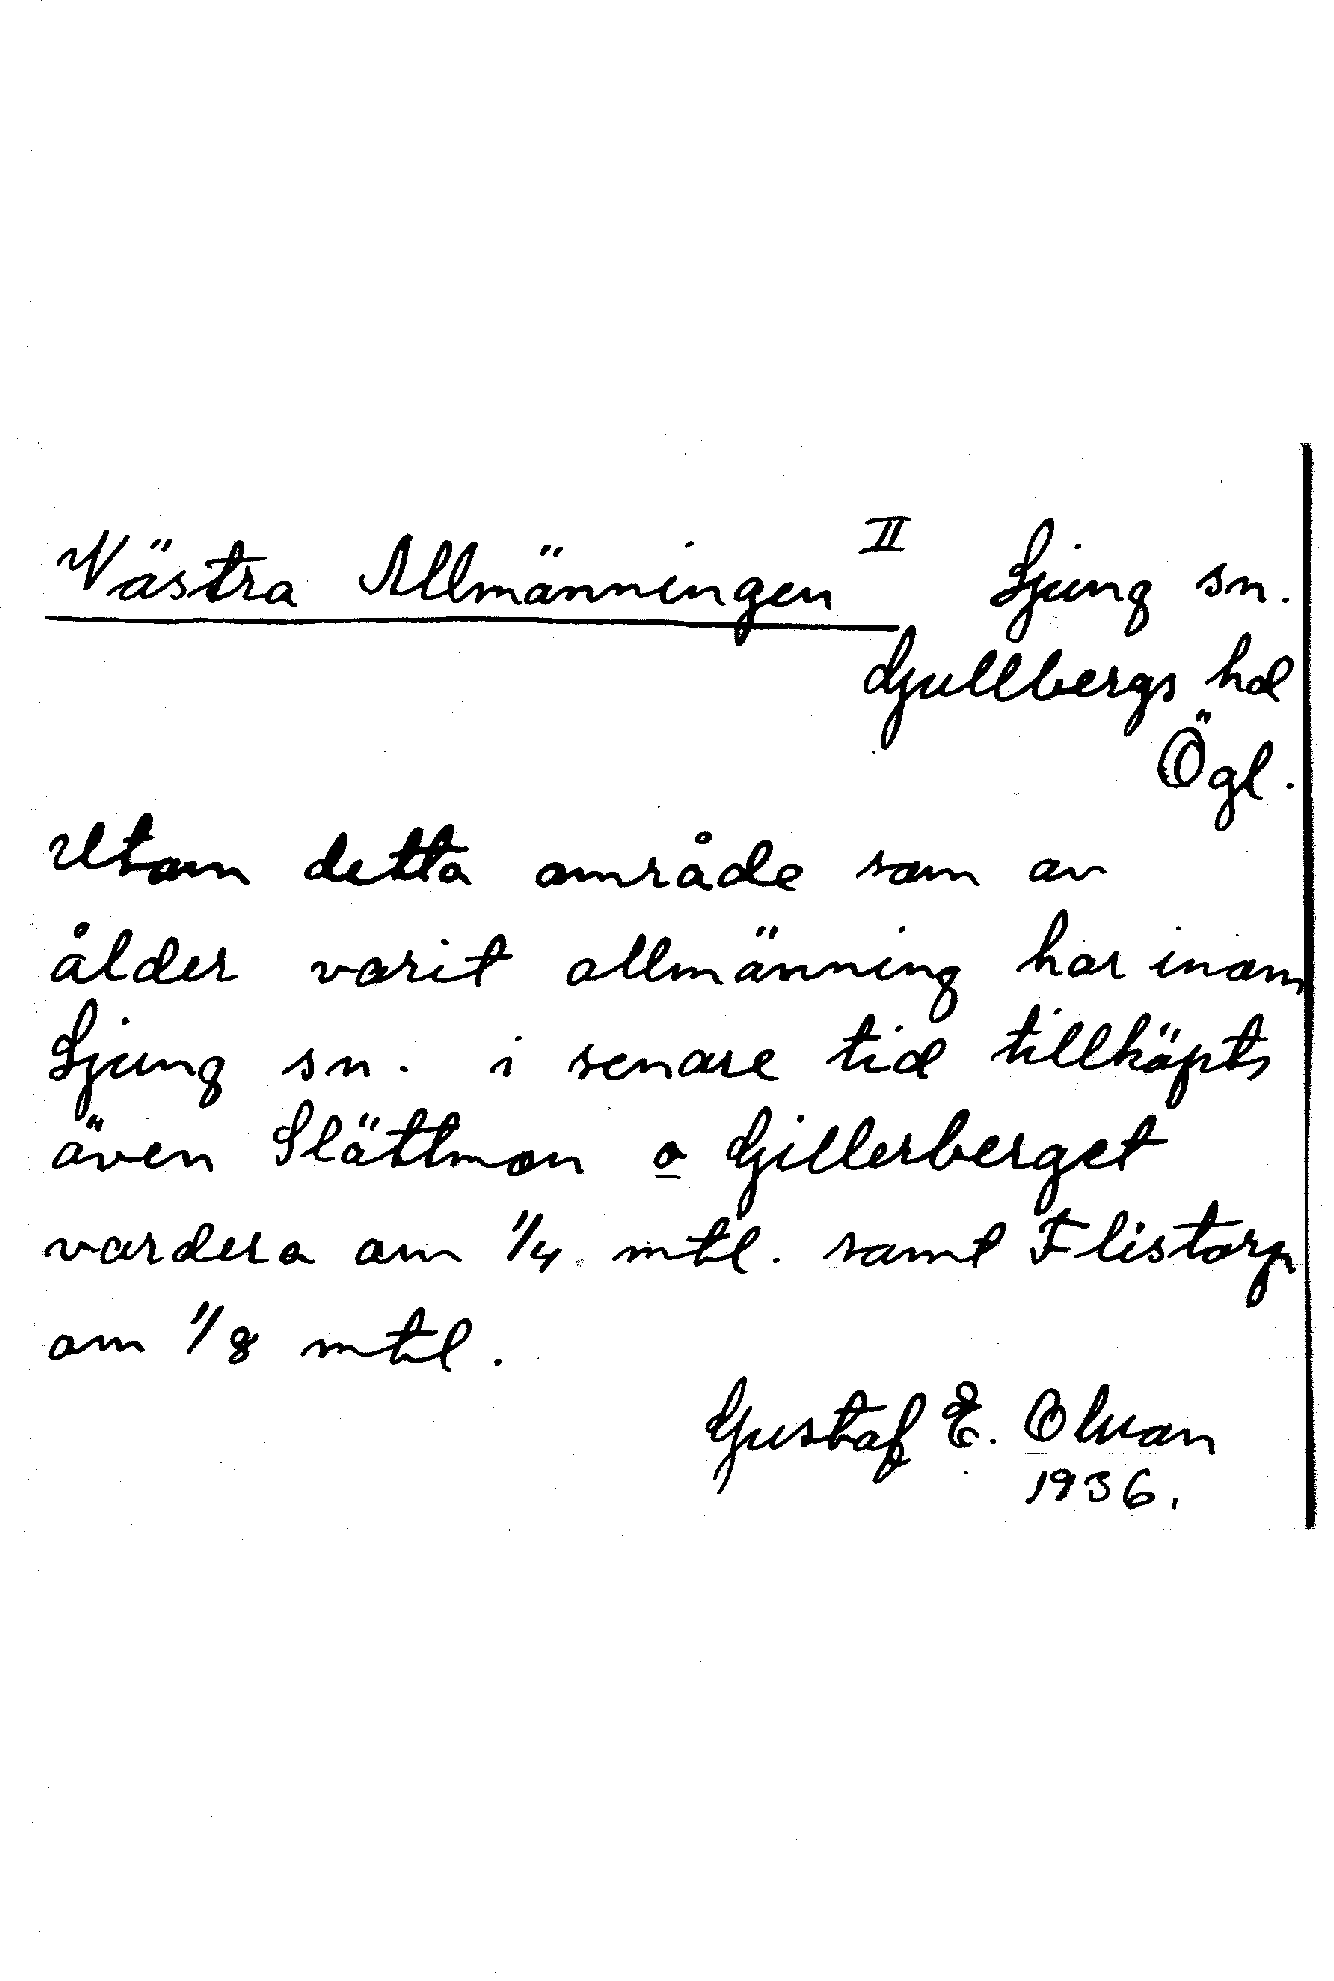 Västra Allmänningen II Ljung sn.
Gullbergs hd
Ögl.
Utom detta område som av
ålder varit allmänning har inom
Ljung sn. i senare tid tillköpts
även Slättmon o Gillerberget
vardera om 1/4 mtl. samt Flistorp
om 1/8 mtl.
Gustaf E. Olson
1936.